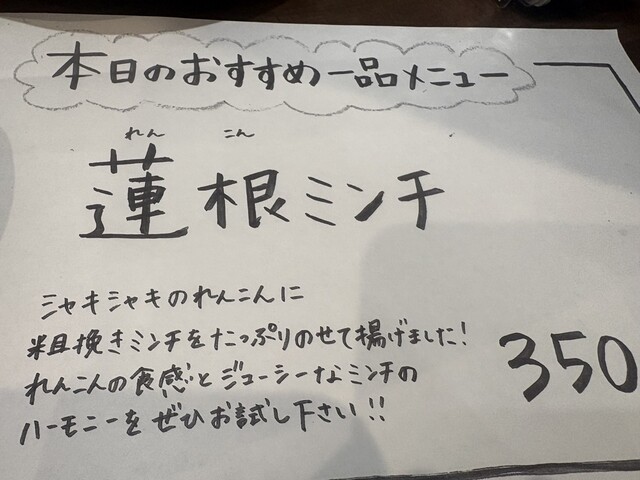 本日のおすすめ一品メニュー
れん こん
蓮根ミンチ
シャキシャキのれんこんに
粗挽きミンチをたっぷりのせて揚げました!
れんこんの食感とジューシーなミンチの
ハーモニーをぜひお試し下さい!!
350